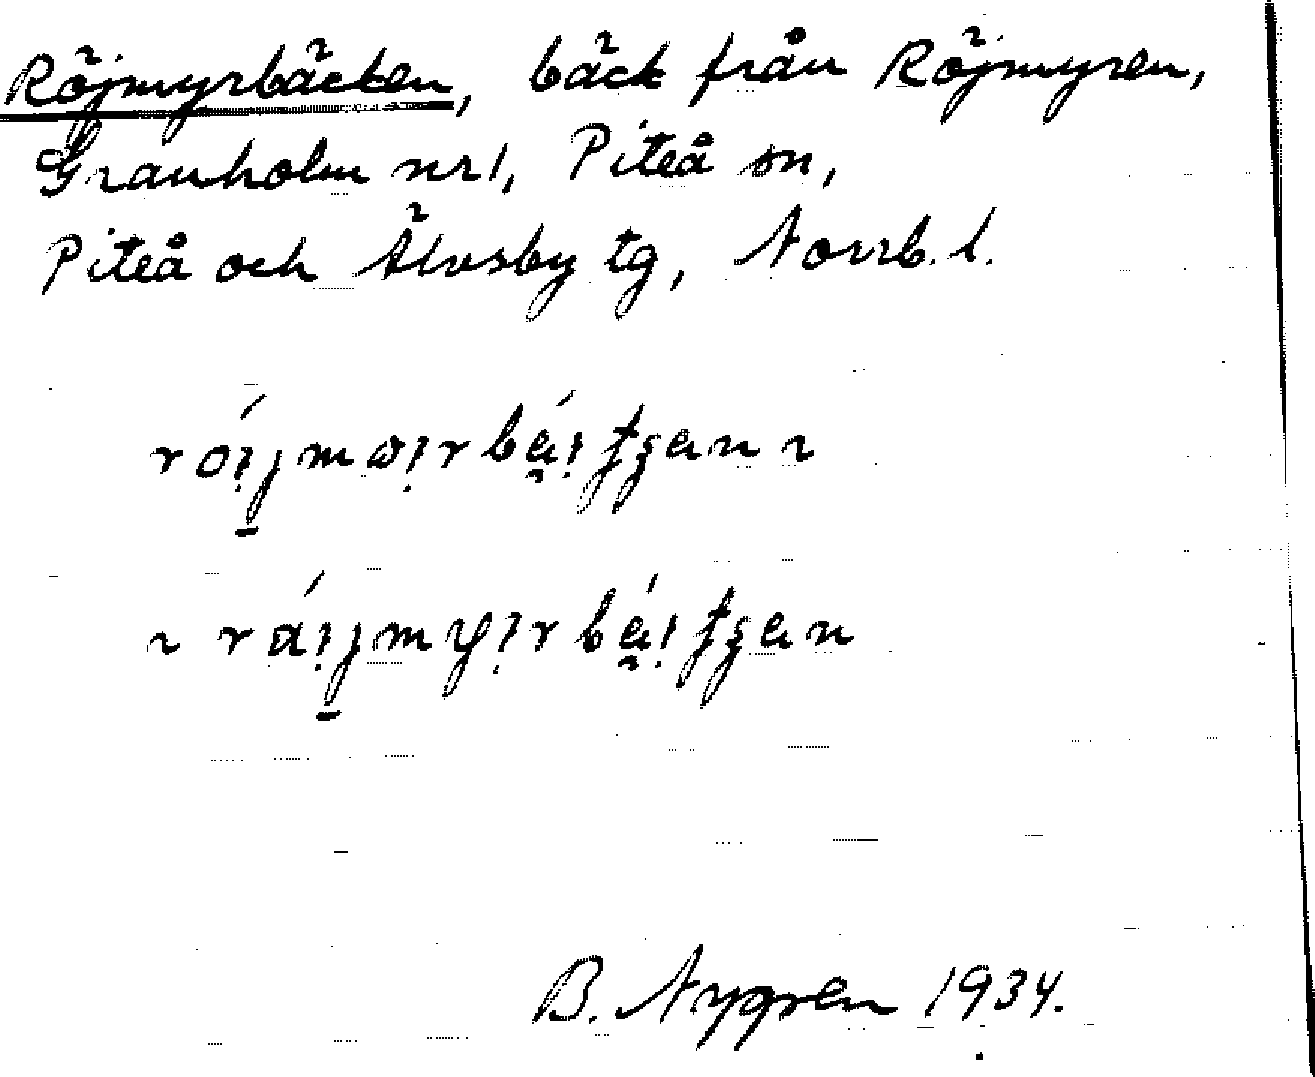 Röjmyrbäcken, bäck från Röjmyren,
Granholm nr 1, Piteå sn,
Piteå och Älvsby tg, Norrb. l.
B. Nygren 1934.